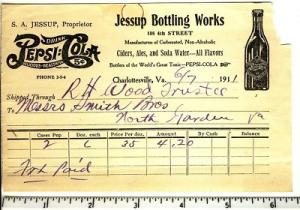 S. A. JESSUP, Proprietor
Jessup Bottling Works
108 4th STREET
Manufacturers of Carbonated, Non-Alcoholic
Ciders, Ales, and Soda Water—All Flavors
Bottlers of the World's Great Tonic—PEPSI-COLA
DRINK
PEPSI-COLA
5¢
PHONE 3-5-4
Charlottesville, Va. 6/7 1911
Shipped Through R H Wood Trustee
Messrs Smith Bros
North Garden Va
Cases Pep Doz. each Per doz. Amount By Cash Balance
2 6 35 4.20
Frt Paid
1 2 3 4 5 6